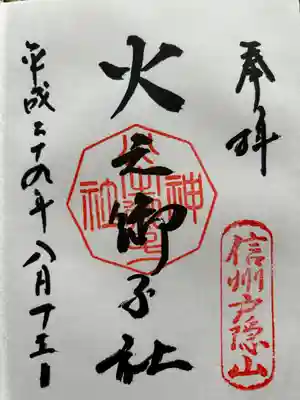 奉拝
信州戸隠山
火之御子社
神社
平成二十九年八月十